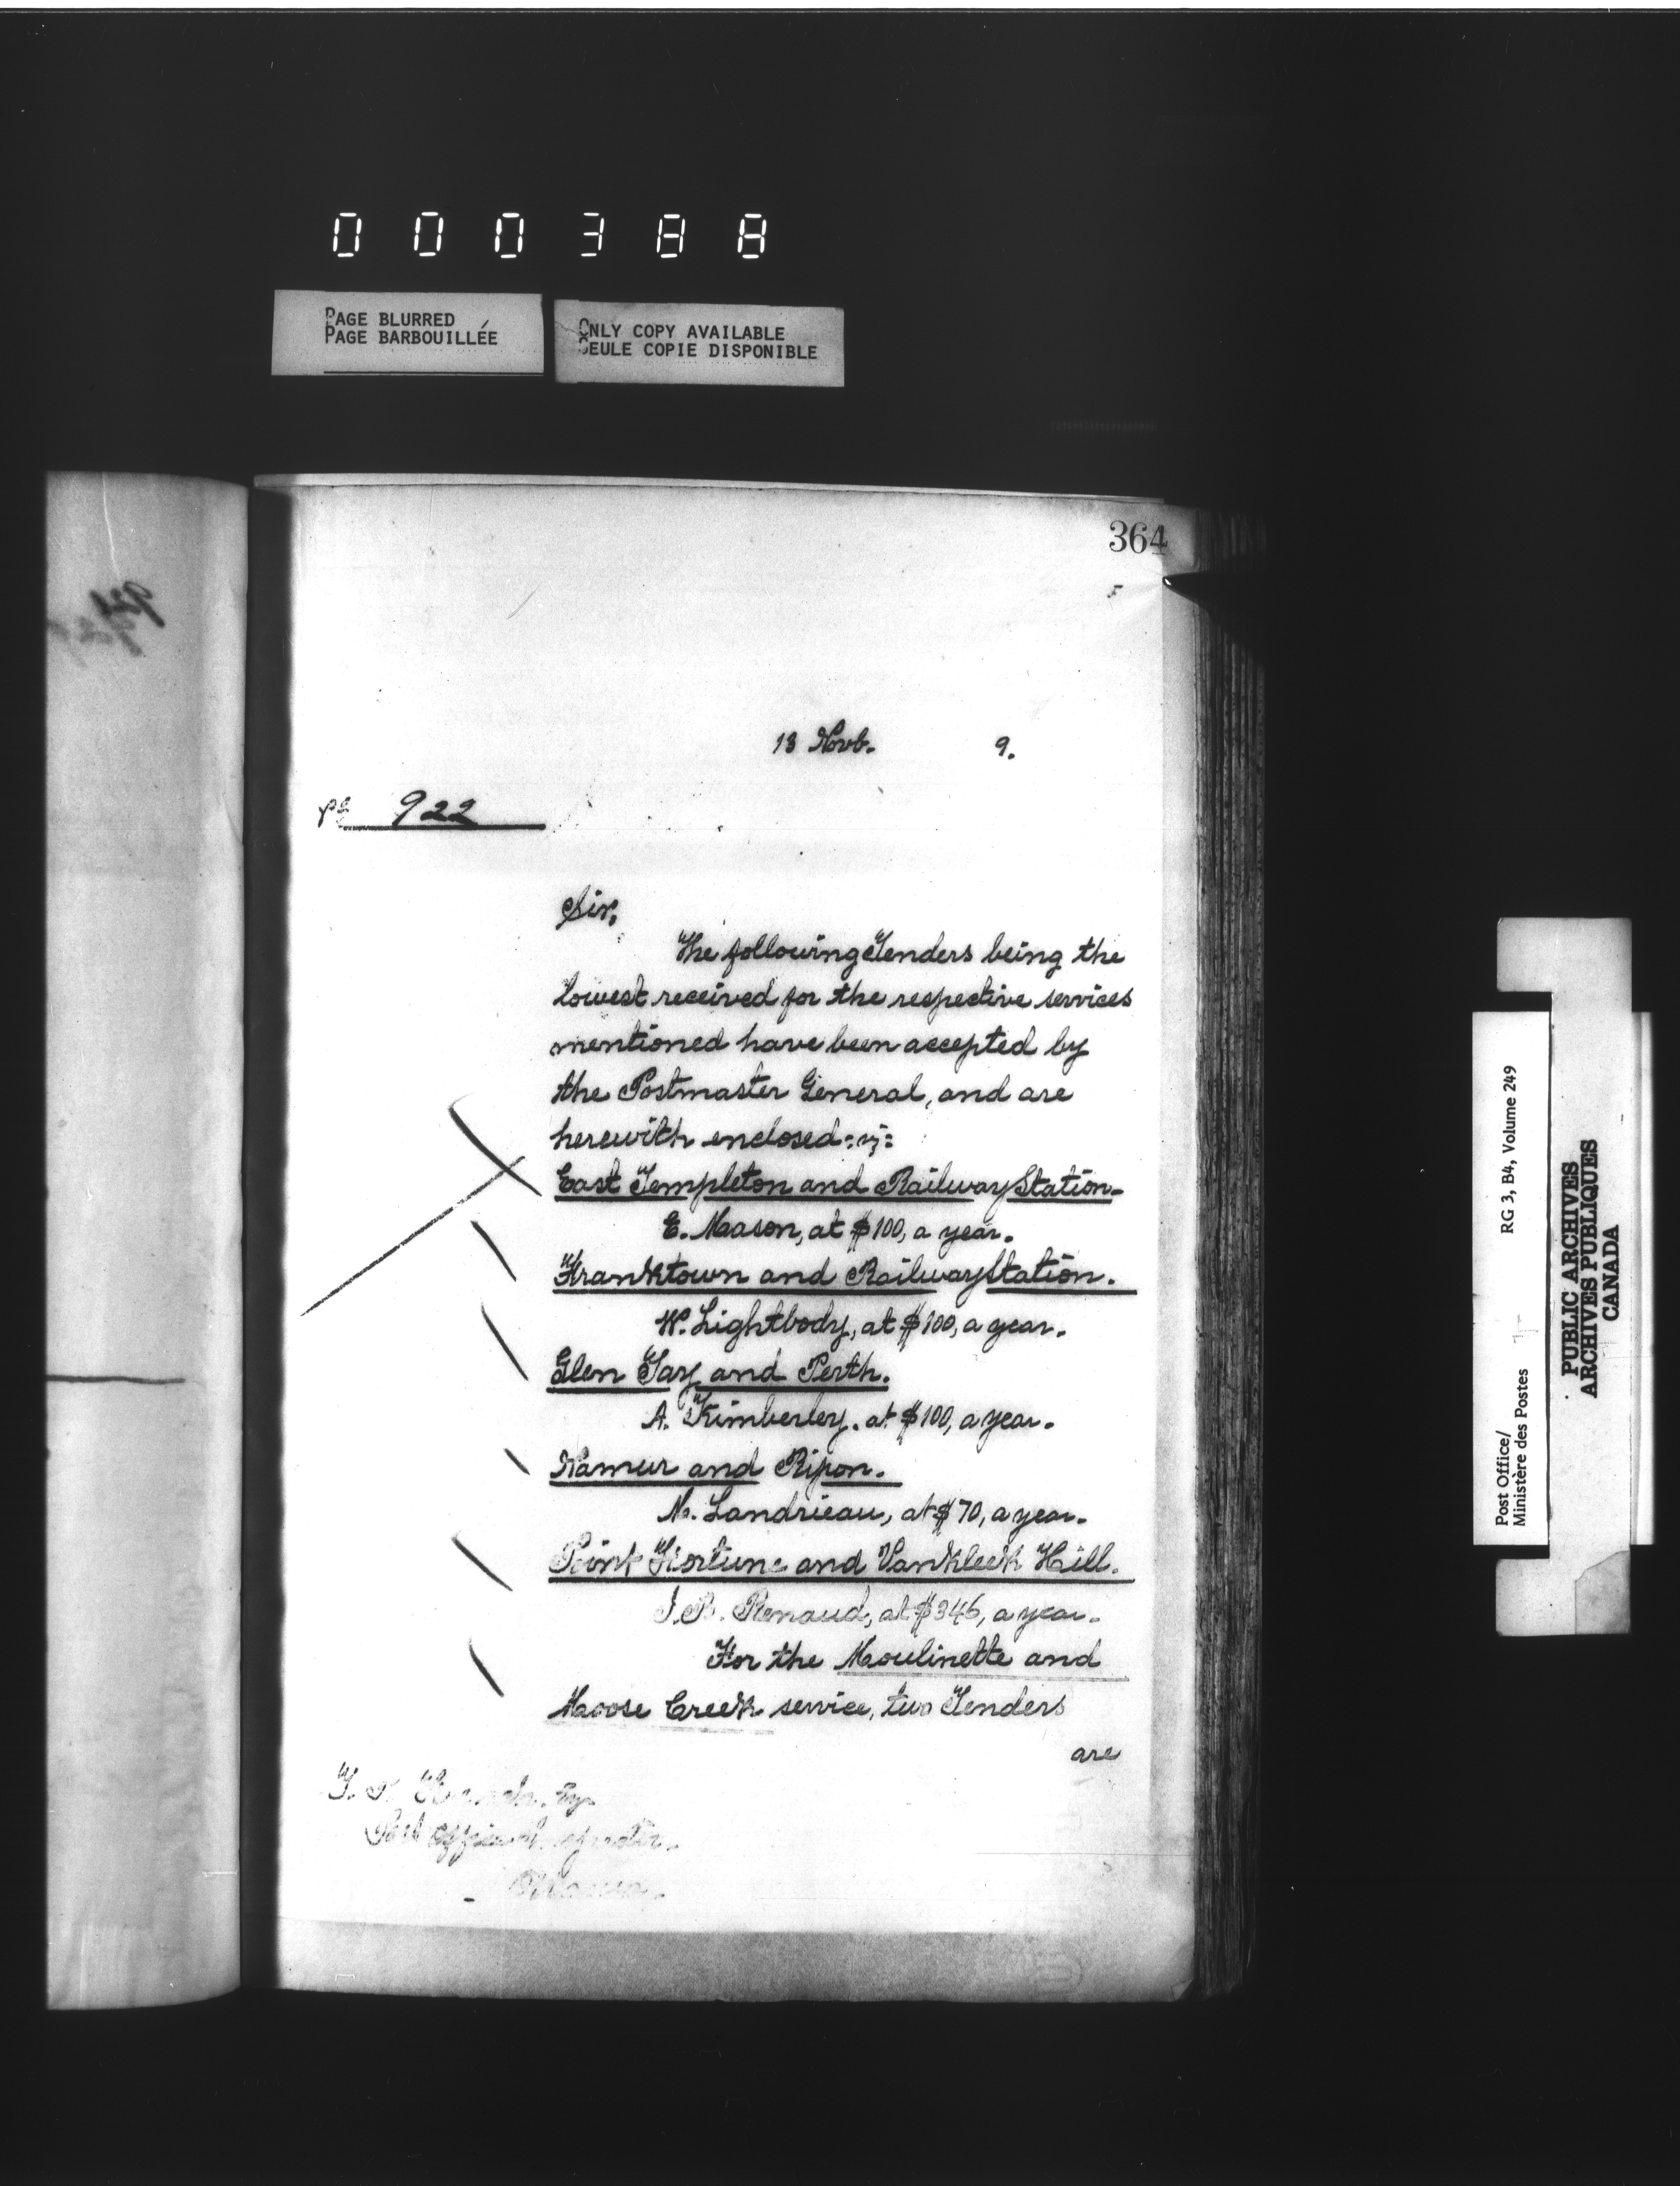 000388
PAGE BLURRED
PAGE BARBOUILLÉE
ONLY COPY AVAILABLE
SEULE COPIE DISPONIBLE
364
13 Novb. 9.
922
Sir,
The following Tenders being the
lowest received for the respective services
mentioned have been accepted by
the Postmaster General, and are
herewith enclosed:
East Templeton and Railway Station.
E. Mason, at $100, a year.
Franktown and Railway Station.
W. Lightbody, at $100, a year.
Glen Tay and Perth.
A. Kimberley. at $100, a year.
Namur and Ripon.
M. Landrieau, at $70, a year.
Point Fortune and Vankleek Hill.
J.B. Renaud, at $346, a year.
For the Moulinette and
Moose Creek service, two Tenders
are
T. P. French. Esq
Post Office Inspector.
Ottawa.
Post Office/ RG 3, B4, Volume 249
Ministère des Postes
PUBLIC ARCHIVES
ARCHIVES PUBLIQUES
CANADA